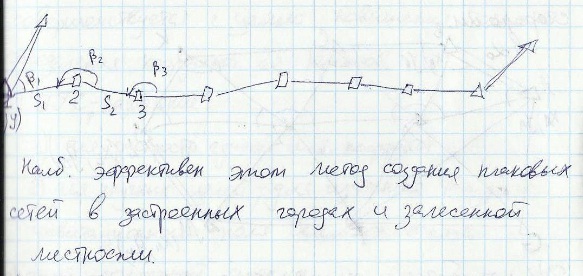 β₁ β₂ β₃
S₁ 2 S₂ 3
У)
Наиб. эффективен этот метод создания плановых
сетей в застроенных городах и залесенной
местности.